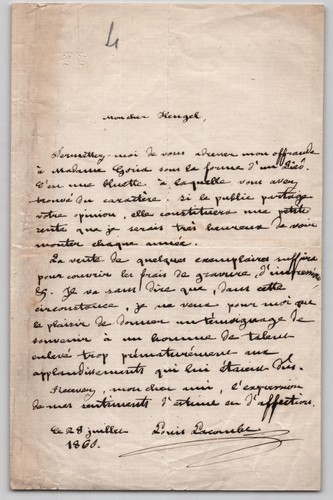 Mon cher Heugel,
Permettez-moi de vous adresser mon offrande
à Madame Goria sous la forme d'un Lied.
C'est une bluette à laquelle vous avez
trouvé du caractère. Si le public partage
votre opinion, elle constituera une petite
rente que je serais très heureux de voir
monter chaque année.
La vente de quelques exemplaires suffira
pour couvrir les frais de gravure, d'impression
&. Je va sans dire que, dans cette
circonstance, je ne veux pour moi que
le plaisir de donner un témoignage de
souvenir à un homme de talent
enlevé trop prématurément aux
applaudissements qui lui étaient dûs.
Recevez, mon cher ami, l'expression
de mes sentiments d'estime et d'affection.
Ce 28 juillet
1860. Louis Lacombe